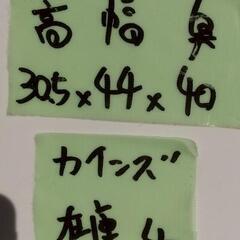 高 幅 奥
30.5×44×40
カインズ
在庫 4